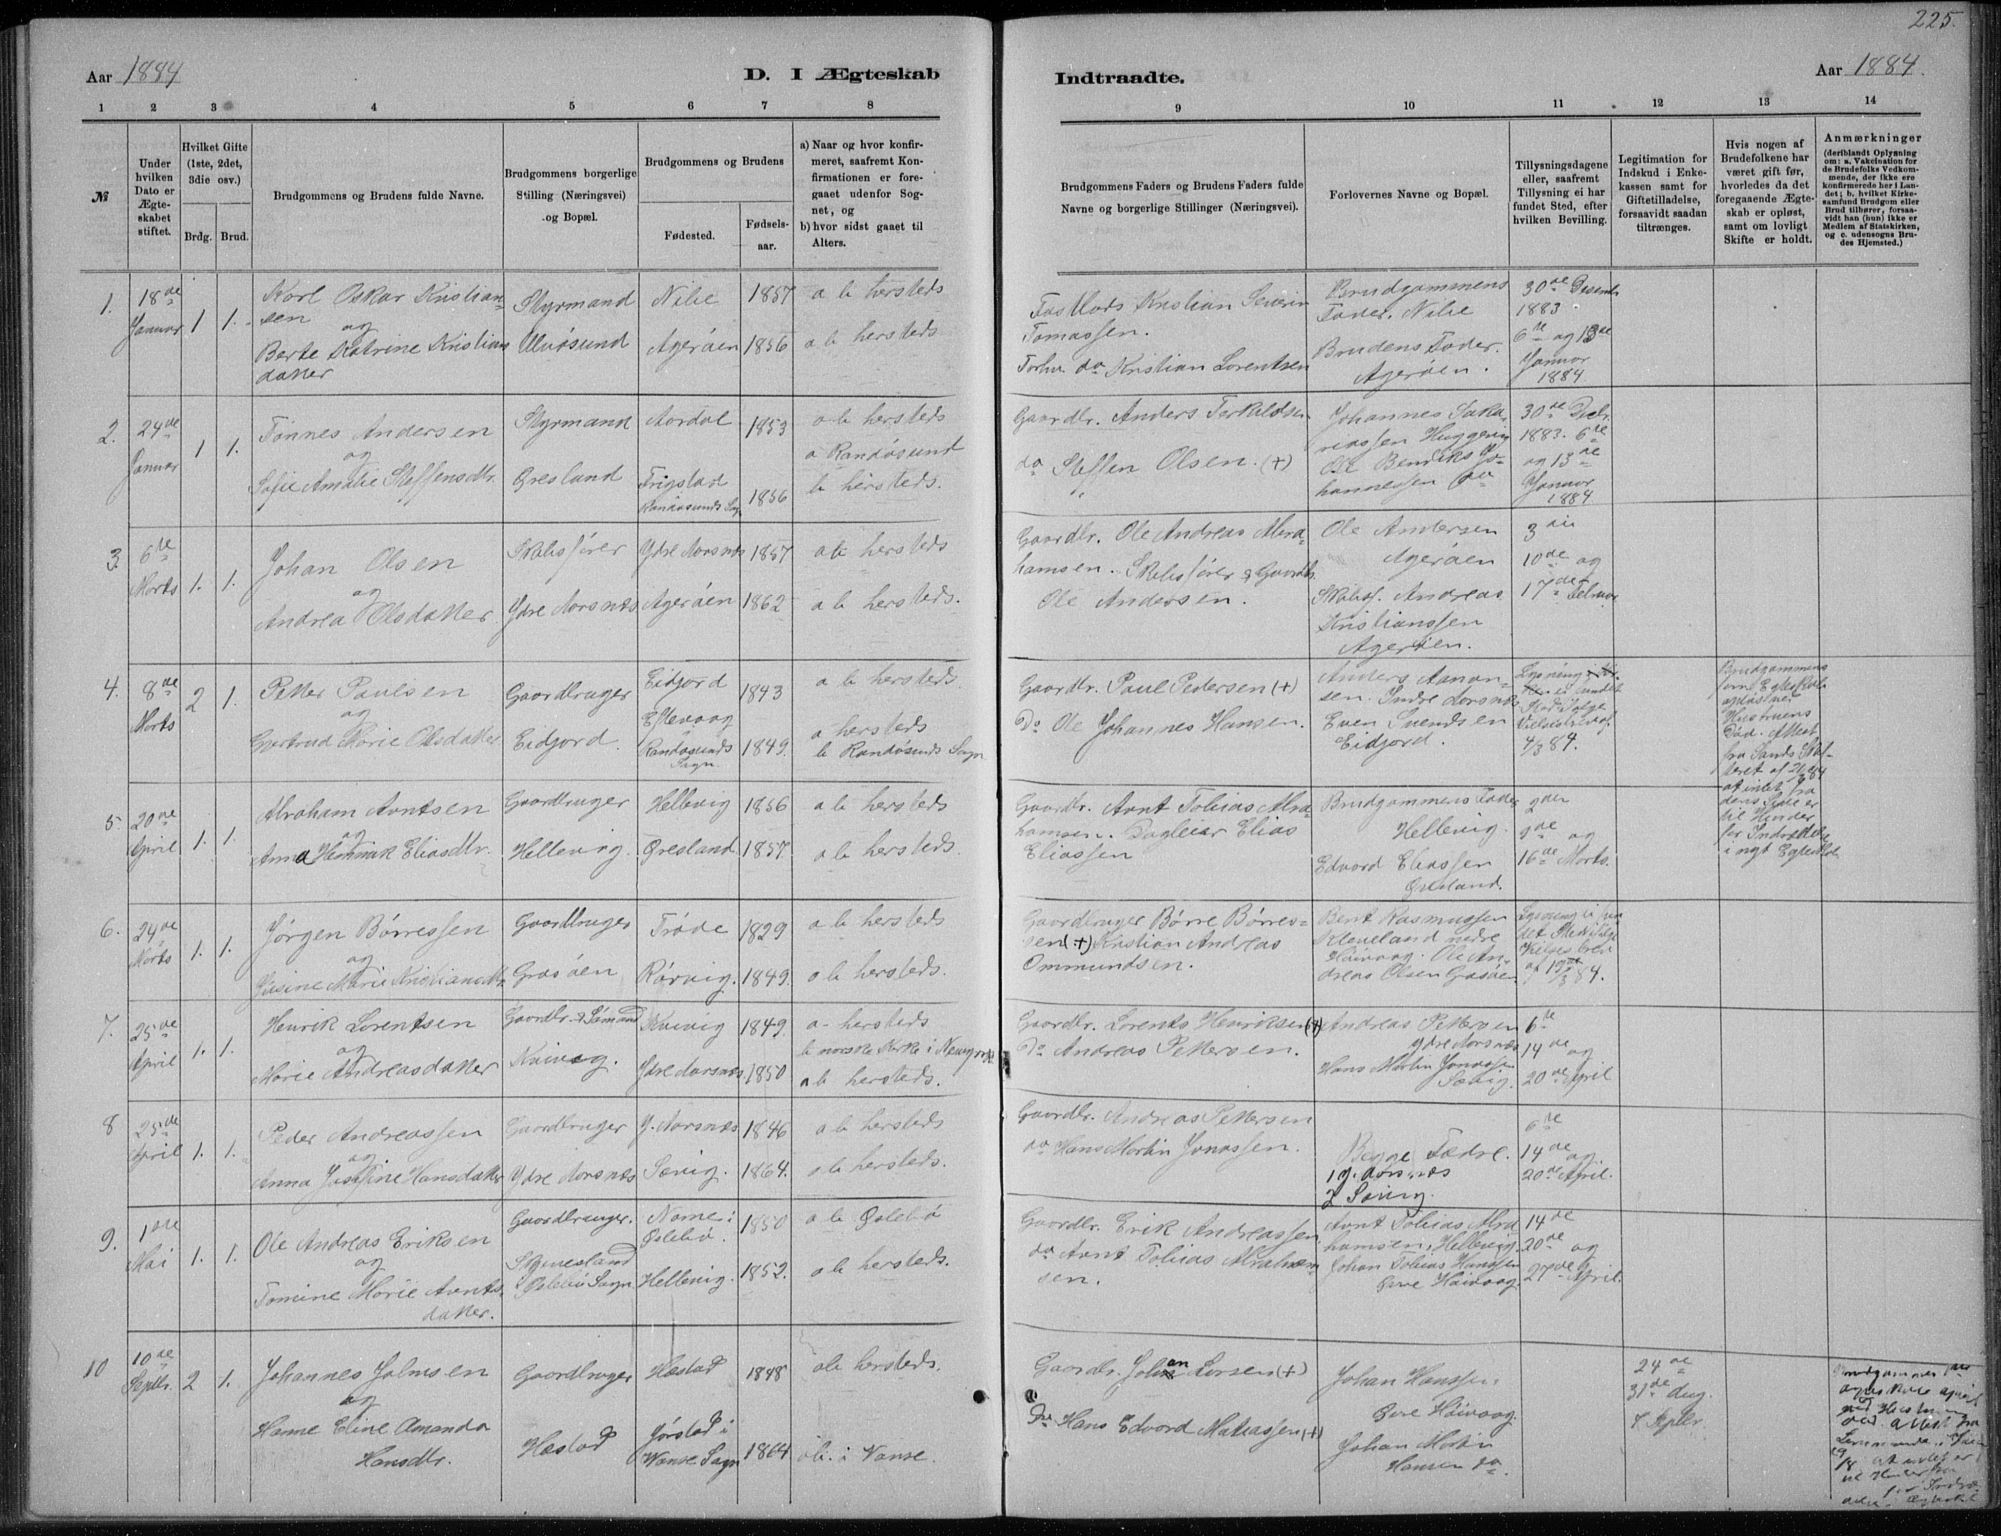 225.
Aar 1884
D. I Ægteskab
Indtraadte.
Aar 1884.
1 2 3 4 5 6 7 8
9 10 11 12 13 14
№
Under
hvilken
Dato er
Ægte-
skabet
stiftet.
Hvilket Gifte
(1ste, 2det,
3die osv.)
Brdg. Brud.
Brudgommens og Brudens fulde Navne.
Brudgommens borgerlige
Stilling (Næringsvei)
og Bopæl.
Brudgommens og Brudens
Fødested.
Fødsels-
aar.
a) Naar og hvor konfir-
meret, saafremt Kon-
firmationen er fore-
gaaet udenfor Sog-
net, og
b) hvor sidst gaaet til
Alters.
Brudgommens Faders og Brudens Faders fulde
Navne og borgerlige Stillinger (Næringsvei).
Forlovernes Navne og Bopæl.
Tillysningsdagene
eller, saafremt
Tillysning ei har
fundet Sted, efter
hvilken Bevilling.
Legitimation for
Indskud i Enke-
kassen samt for
Giftetilladelse,
forsaavidt saadan
tiltrænges.
Hvis nogen af
Brudefolkene har
været gift før,
hvorledes da det
foregaaende Ægte-
skab er opløst,
samt om lovligt
Skifte er holdt.
Anmærkninger
(deriblandt Oplysning
om: a. Vakcination for
de Brudefolks Vedkom-
mende, der ikke ere
konfirmerede her i Lan-
det; b. hvilket Kirke-
samfund Brudgom eller
Brud tilhører, forsaa-
vidt han (hun) ikke er
Medlem af Statskirken,
og c. udensogns Bru-
des Hjemsted.)
1.
18de
Januar
1 1.
Karl Oskar Kristian-
sen
og
Berte Katrine Kristians
datter
Styrmand
Ulvøsund
Agerøen
1857
1856
a b hersteds
a b hersteds
Kristian Severin
Tomassen.
do Kristian Lorentsen
Brudgommens
Fader.
Brudens Fader.
Agerøen.
30de
1883
6te og 13de
Januar
1884.
2.
24de
Januar
1 1.
Tønnes Andersen
og
Sofie Amalie Steffensdtr.
Styrmand
Øresland
Aardal
Frigstad
Randøsunds Sogn
1853
1856
a b hersteds
a Randøsund
b hersteds.
Gaardbr. Anders Terkeldsen
do Steffen Olsen. (+)
Johannes Saka-
riassen
30de Decbr.
1883. 6te
og 13de
Januar
1884
3.
6te
Marts
1. 1.
Johan Olsen
og
Andrea Olsdatter
Skibsfører
Ydre Aarsnæs
Ydre Aarsnæs
Agerøen
1857
1862
a b hersteds
a b hersteds.
Gaardbr. Ole Andreas Abra-
hamsen. Skibsfører & Gaardbr.
Ole Andersen.
Ole Andersen
Agerøen
Skibsf. Andreas
Kristianssen
Agerøen.
3die
10de og
17de Februar
4.
8de
Marts
2 1.
Petter Paulsen
og
Gjertrud Marie Olsdatter
Gaardbruger
Eidjord.
Eidjord
Eftevaag
Randøsunds
Sogn.
1843
1849.
a b hersteds.
a hersteds
b Randøsunds Sogn
Gaardbr. Paul Pedersen (+)
Do Ole Johannes Hansen.
Anders Aanon-
sen. Indre Aarsnæs
Even Svendsen
Eidjord.
4/3 84.
Brudgommens
Hustruens
Død. Attest
5.
20de
April
1. 1.
Abraham Arntsen
og
Anna Hennink Eliasdtr.
Gaardbruger
Hellevig.
Hellevig
Øresland
1856
1857.
a b hersteds
a b hersteds.
Gaardbr. Arnt Tobias Abra-
hamsen. Dagleier Elias
Eliassen
Brudgommens Fader
Hellevig.
Edvard Eliassen
Øresland.
2den
9de og
16de Marts.
6.
24de
Marts
1. 1.
Jørgen Børressen
og
Gaardbruger
Grasøen
Trøde
Rørvig.
1829
1849.
a b hersteds
a b hersteds.
Gaardbruger Børre Børres-
sen (+) Kristian Andreas
Ommundsen.
Bent Rasmussen
Kleveland nedre
Høivaag. Ole An-
dreas Olsen
19de/3 84.
7.
25de
April
1. 1.
Henrik Lorentsen
og
Marie Andreasdatter
Gaardbr. & Sømand
Kvivig.
Kvivig
Ydre Aarsnæs
1849.
1850
a- hersteds
b norske Kirke i Newyork
a b hersteds.
Gaardbr. Lorents Henriksen (+)
Do Andreas Pettersen.
Andreas Pettersen
Ydre Aarsnæs
Hans Martin Jonassen
Sævig.
6te
14de og
20de April
8
25de
April
1. 1.
Peder Andreassen
og
Anna Justine Hansdatter
Gaardbruger
Ydre Aarsnæs
Y. Aarsnæs
Sævig.
1846
1864.
a b hersteds
a b hersteds.
Gaardbr. Andreas Pettersen
do Hans Martin Jonassen.
Begge Fædre.
1 y. Aarsnæs
2 Sævig.
6te
14de og
20de April.
9.
1ste
Mai
1. 1.
Ole Andreas Eriksen
og
Tomine Marie Arnts-
datter.
Gaardbruger.
Øslebø Sogn.
Nome i
Øslebø.
Hellevig.
1850
1852.
a b Øslebø
a b hersteds.
Gaardbr. Erik Andreassen
do Arnt Tobias Abraham-
sen.
Arnt Tobias Abra
hamsen, Hellevig
Johan Tobias Hanssen
Øvre Høivaag
14de
20de og
27de April.
10
10de
Septbr.
2 1.
Johannes Johnsen
og
Hanne Eline Amanda
Hansdtr.
Gaardbruger
Hæstad
Hæstad
Jørstad i
Vanse Sogn
1848
1864
a b hersteds.
a b. i Vanse.
Gaardbr. Johan Larsen (+)
Do Hans Edvard Matiassen (+)
Johan Hanssen.
Øvre Høivaag
Johan Martin
Hansen do
24de
31de Aug.
7 Septbr.